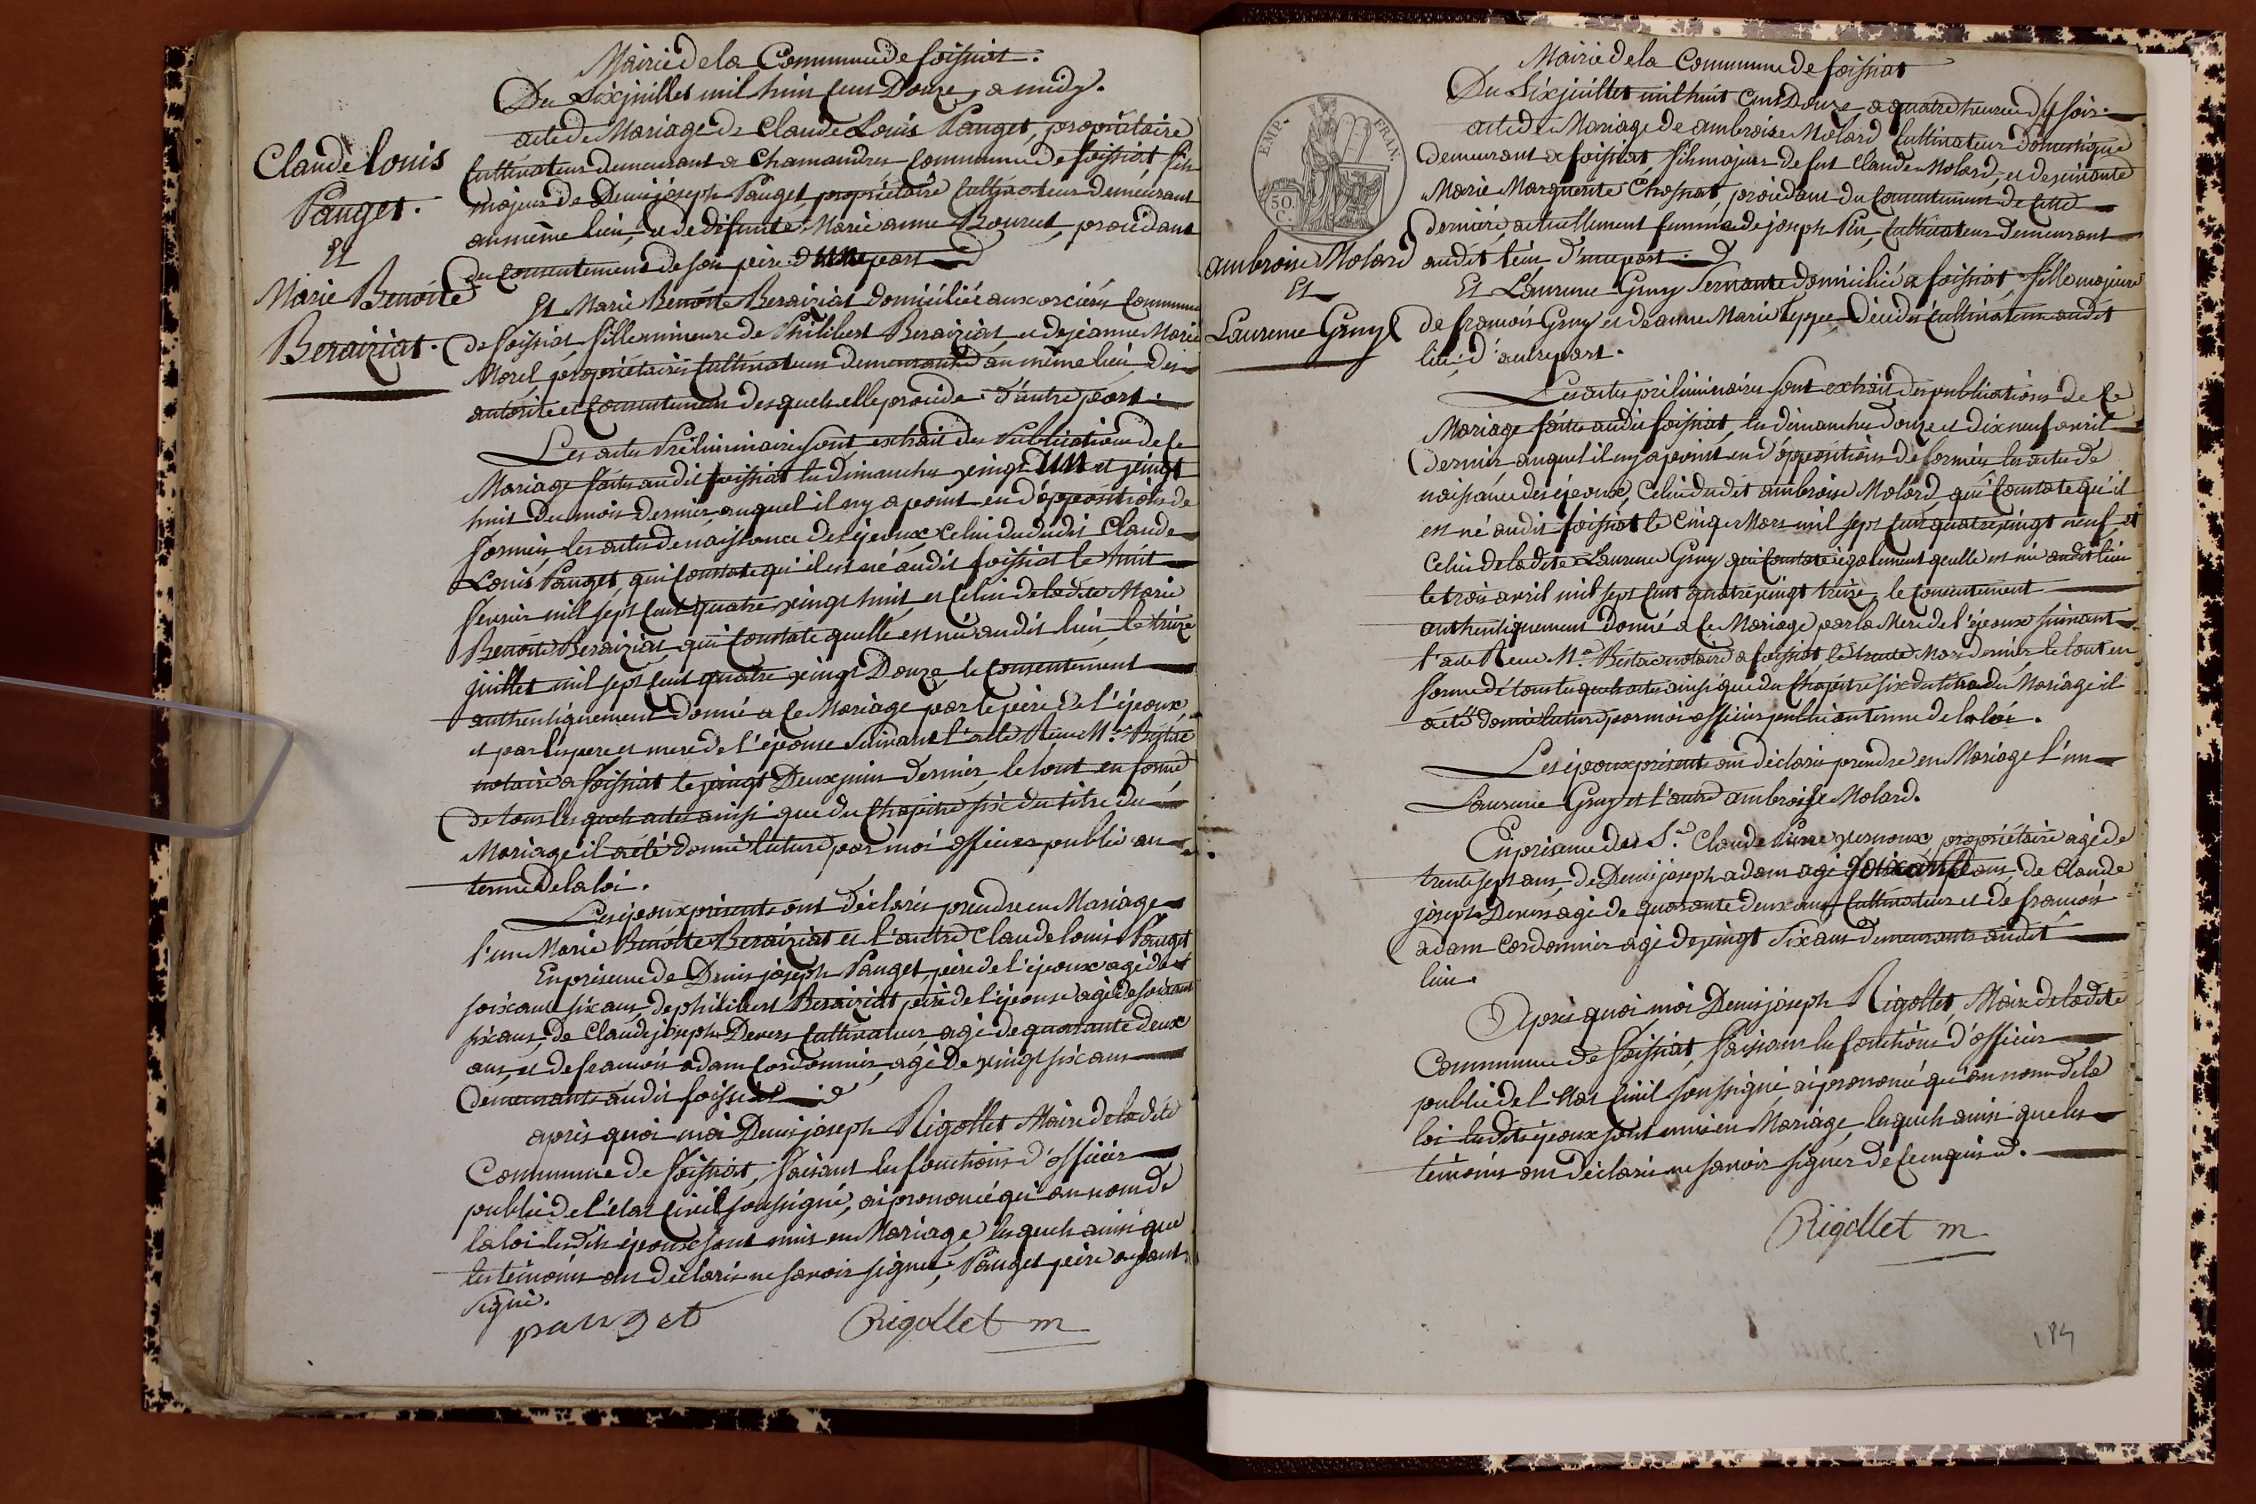 Mairie de la Commune de foissiat.
Du Six juillet mil huit Cent Douze, a midy.
acte de Mariage de Claude Louis Pauget, propriétaire
Cultivateur demeurant a Chamandrey Commune de foissiat fils
majeur de Denis joseph Pauget propriétaire Cultivateur demeurant
au même lieu, et de défunte Marie anne Bouret, procédant
du Consentement de son père. d'une part
Claude Louis
Pauget.
Et
Marie Benoite
Beraiziat.
Et Marie Benoite Beraiziat domiciliée aux orciers Commune
de foissiat fille mineure de Philibert Beraiziat et de jeanne Marie
Morel, propriétaires Cultivateurs demeurants au même lieu, des
autorité et Consentement desquels elle procède d'autre part.
Les actes Préliminaires sont extrait des Publications de Ce
Mariage faites audit foissiat les Dimanches vingt un et vingt
huit du mois dernier auquel il ny a point eu d'oppositions de
formées les actes de naissance des époux, Celui du dudit Claude
Louis Pauget, qui Constate qu'il est né audit foissiat le huit
fevrier mil sept Cent quatre vingt huit et Celui de ladite Marie
Benoite Beraiziat, qui Constate quelle est née audit lieu le treize
juillet mil sept Cent quatre vingt Douze, le Consentement
authentiquement donné a Ce Mariage par le père de l'époux,
et par les pere et mere de l'épouse suivant l'acte Reçu Me.
notaire a foissiat le vingt Deux juin dernier, le tout en forme
de tous les quels actes ainsi que du Chapitre six du titre du
Mariage il a été donné lecture par moi officier public au
terme de la loi.
Les époux présents ont déclaré prendre en Mariage
l'un Marie Benoite Beraiziat et l'autre Claude Louis Pauget
En présence de Denis joseph Pauget, père de l'époux agé de
soixante six ans, de philibert Beraiziat père de l'épouse agé de soixante
six ans, de Claude joseph Devers Cultivateur agé de quarante deux
ans, et de françois adam Cordonnier, agé de vingt six ans
Demeurants audit foissiat
après quoi moi Denis joseph Rigollet Maire de la dite
Commune de foissiat, faisant les fonctions d'officier
public de l'état Civil soussigné, ai prononcé qu'au nom de
la loi lesdits époux sont unis en Mariage, lesquels ainsi que
les témoins ont déclaré ne savoir signer, Pauget père ayant
signé.
pauget Rigollet m
Mairie de la Commune de foissiat
Du Six juillet mil huit Cent Douze a quatre heures du soir.
acte de Mariage de ambroise Molard Cultivateur Domestique
demeurant a foissiat fils majeur de fut Claude Molard, et de vivante
Marie Marguerite Chosnat, procédant du Consentement de Cette
dernière, actuellement femme de joseph Pin, Cultivateur demeurant
audit lieu d'une part.
EMP. FRAN.
50. C.
ambroise Molard
Et
Laurence Gruy
Et Laurence Gruy Servante domiciliée a foissiat, fille majeure
de françois Gruy et de anne Marie Teppe Décédés Cultivateurs audit
lieu, d'autre part.
Les actes préliminaires sont extrait des publications de Ce
Mariage faites audit foissiat, les dimanches douze et dix neuf avril
dernier auquel il ny a point eu d'oppositions de formées les actes de
naissance des époux, Celui dudit ambroise Molard, qui Constate qu'il
est né audit foissiat le Cinq Mars mil sept Cent quatre vingt neuf, et
Celui de ladite Laurence Gruy qui Constate également quelle est née audit lieu
le trois avril mil sept Cent quatre vingt treize, le Consentement
authentiquement donné a Ce Mariage par la Mere de l'époux suivant
l'acte Reçu Me. notaire a foissiat le trente Mars dernier le tout en
forme de tous les quels actes ainsi que du Chapitre six du titre du Mariage il
a été donné lecture par moi officier public au terme de la loi.
Les époux présents ont déclaré prendre en Mariage l'un
Laurence Gruy et l'autre ambroise Molard.
En présence des Srs. Claude Pierre vernoux, propriétaire agé de
trente sept ans, de Denis joseph adam agé soixante ans, de Claude
joseph Devers agé de quarante deux ans Cultivateur et de françois
adam Cordonnier agé de vingt six ans demeurants audit
lieu.
Après quoi moi Denis joseph Rigollet, Maire de ladite
Commune de foissiat, faisant les fonctions d'officier
public de l'état Civil soussigné, ai prononcé qu'au nom de la
loi lesdits époux sont unis en Mariage, lesquels ainsi que les
témoins ont déclaré ne savoir signer de Ce enquis.
Rigollet m